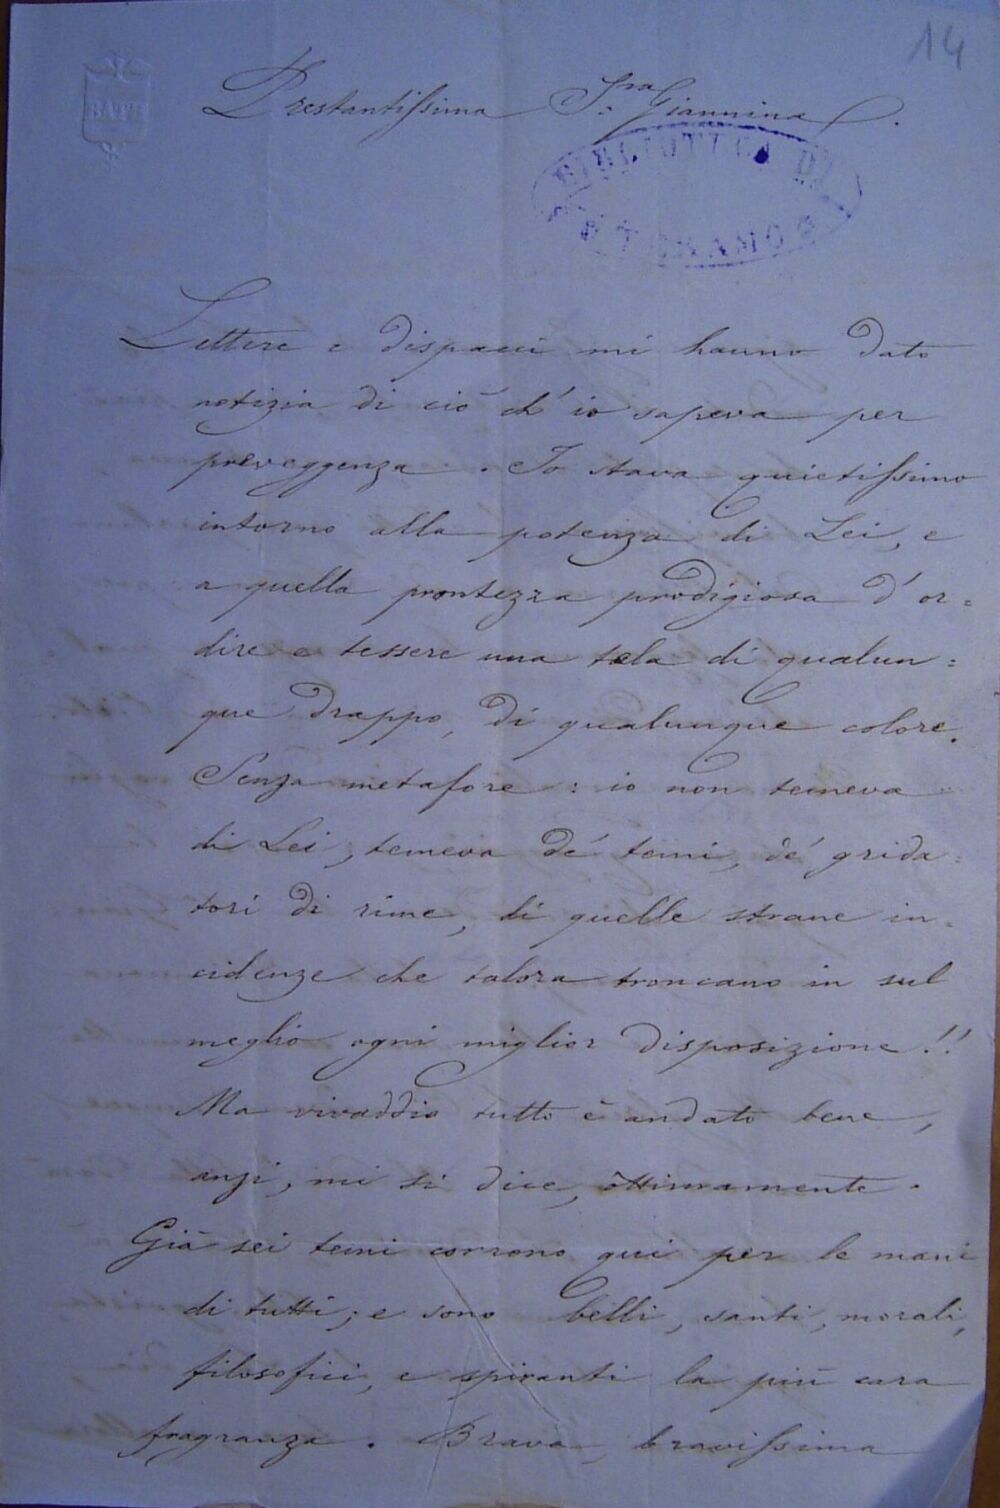 14
BATH
Prestantissima S.ra Giannina
BIBLIOTECA DI
TERAMO
Lettere e dispacci mi hanno dato
notizia di ciò ch' io sapeva per
preveggenza. Io stava quietissimo
intorno alla potenza di Lei, e
a quella prontezza prodigiosa d' or=
dire e tessere una tela di qualun=
que drappo, di qualunque colore.
Senza metafore: io non temeva
di Lei, temeva de' temi, de' grida=
tori di rime, di quelle strane in=
cidenze che talora troncano in sul
meglio ogni miglior disposizione!!
Ma vivaddio tutto è andato bene,
anzi, mi si dice, ottimamente.
Già sei temi corrono qui per le mani
di tutti; e sono belli, santi, morali,
filosofici, e spiranti la più cara
fragranza. Brava, bravissima